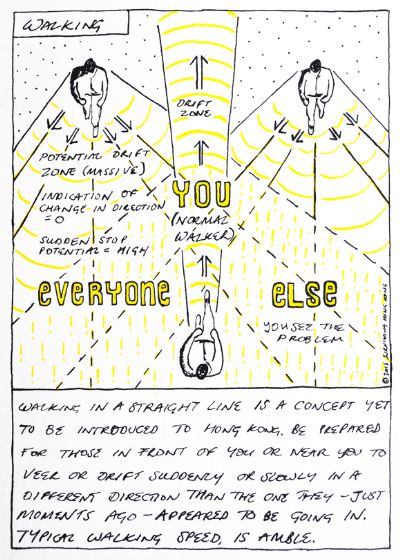 WALKING
DRIFT
ZONE
POTENTIAL DRIFT
ZONE (MASSIVE)
INDICATION OF
CHANGE IN DIRECTION
= 0
SUDDEN STOP
POTENTIAL = HIGH
YOU
(NORMAL
WALKER)
everyone else
YOU SEE THE
PROBLEM
© 2013 SURVIVING HONG KONG
WALKING IN A STRAIGHT LINE IS A CONCEPT YET
TO BE INTRODUCED TO HONG KONG. BE PREPARED
FOR THOSE IN FRONT OF YOU OR NEAR YOU TO
VEER OR DRIFT SUDDENLY OR SLOWLY IN A
DIFFERENT DIRECTION THAN THE ONE THEY – JUST
MOMENTS AGO – APPEARED TO BE GOING IN.
TYPICAL WALKING SPEED, IS AMBLE.